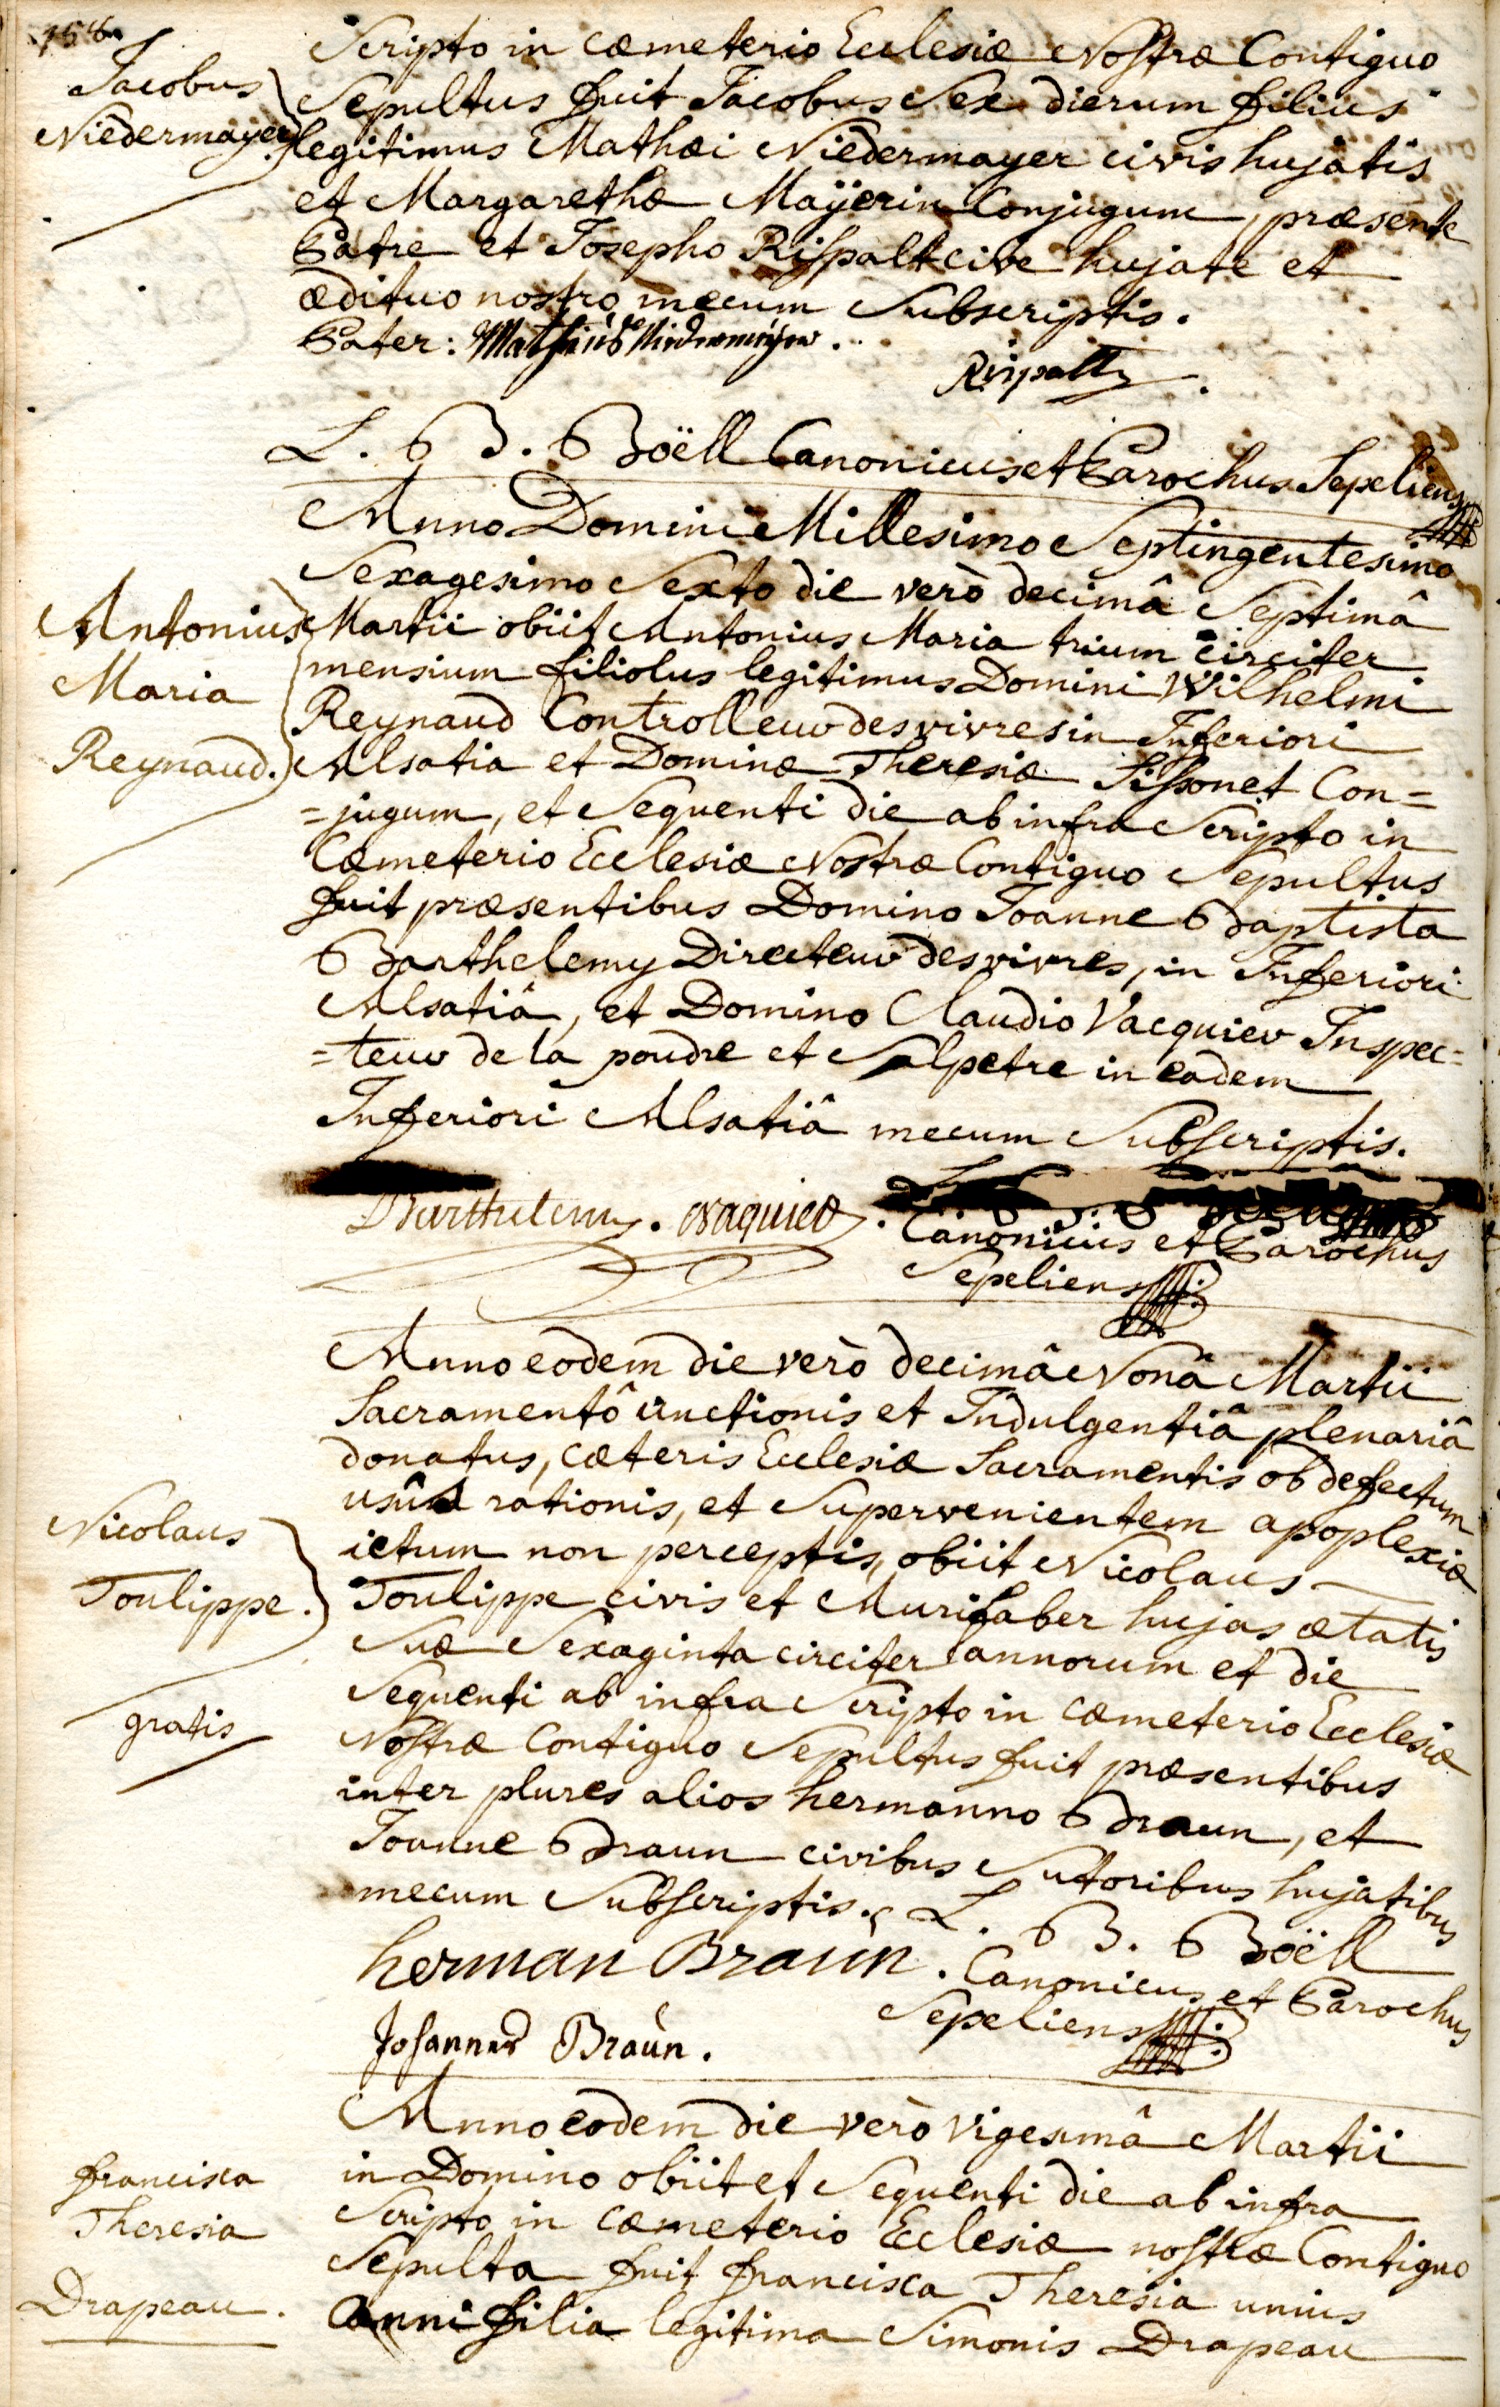 Jacobus
Niedermayer
Scripto in cœmeterio Ecclesiæ Nostræ Contiguo
Sepultus fuit Jacobus Sex dierum filius
legitimus Mathæi Niedermayer civis hujatis
et Margarethæ Maÿerin Conjugum, præsente
Patre et Josepho Rispalt cive hujate et
ædituo nostro mecum Subscriptis.
Pater: Mathius Niedermeyer.
Rispalt
L. B. Boëll Canonicus et Parochus Sepeliens
Antonius
Maria
Reynaud.
Anno Domini Millesimo Septingentesimo
Sexagesimo Sexto die verò decimâ Septimâ
Martii obiit Antonius Maria trium circiter
mensium filiolus legitimus Domini Wilhelmi
Reynaud Controlleur des vivres in Inferiori
Alsatia et Dominæ Theresiæ Sissonet Con=
=jugum, et Sequenti die ab infra Scripto in
Cœmeterio Ecclesiæ Nostræ Contiguo Sepultus
fuit præsentibus Domino Joanne Baptista
Barthelemy Directeur des vivres, in Inferiori
Alsatiâ, et Domino Claudio Vacquier Inspec=
=teur de la poudre et Salpetre in eadem
Inferiori Alsatiâ mecum Subscriptis.
Barthelemy. Vaquier.
Canonicus et Parochus
Sepeliens
Nicolaus
Toulippe.
gratis
Anno eodem die verò decimâ Nonâ Martii
Sacramentô unctionis et Indulgentiâ plenariâ
donatus, cæteris Ecclesiæ Sacramentis ob defectum
usûs rationis, et Supervenientem apoplexiæ
ictum non perceptis, obiit Nicolaus
Toulippe civis et Murifaber hujas ætatis
Suæ Sexaginta circiter annorum et die
Sequenti ab infra Scripto in cœmeterio Ecclesiæ
Nostræ Contiguo Sepultus fuit præsentibus
inter plures alios hermanno Braun, et
Joanne Braun civibus Sutoribus hujatibus
mecum Subscriptis. L. B. Boëll
herman Braun. Canonicus et Parochus
Sepeliens
Johannes Braun.
francisca
Theresia
Drapeau.
Anno eodem die verò vigesimâ Martii
in Domino obiit et Sequenti die ab infra
Scripto in cœmeterio Ecclesiæ nostræ Contiguo
Sepulta fuit francisca Theresia unius
anni filia legitima Simonis Drapeau